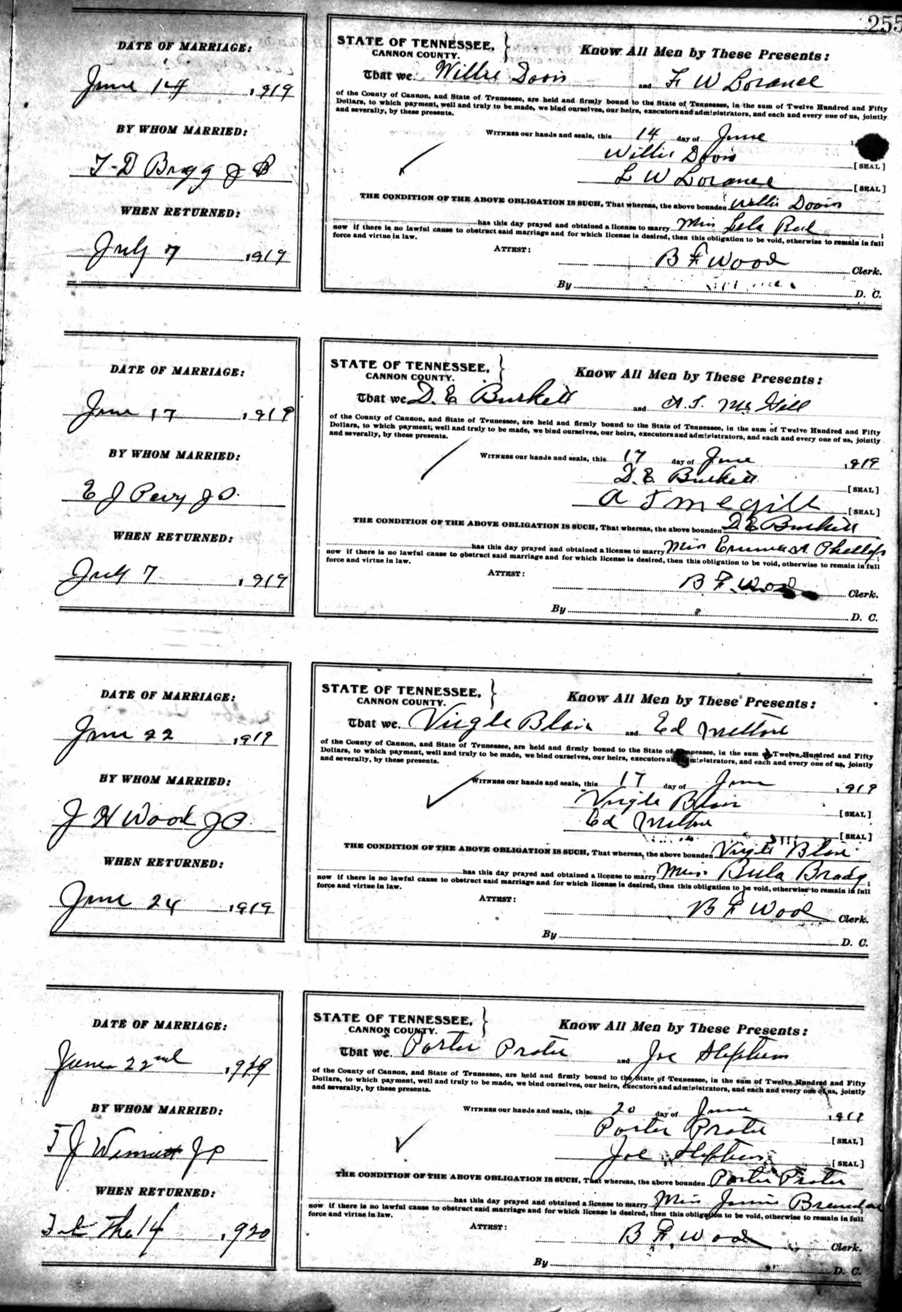 255
DATE OF MARRIAGE:
June 14 1919
BY WHOM MARRIED:
T-D Bragg J P
WHEN RETURNED:
July 7 1919
STATE OF TENNESSEE,
CANNON COUNTY.
Know All Men by These Presents:
That we Willie Davis and W Lorance
of the County of Cannon, and State of Tennessee, are held and firmly bound to the State of Tennessee, in the sum of Twelve Hundred and Fifty
Dollars, to which payment, well and truly to be made, we bind ourselves, our heirs, executors and administrators, and each and every one of us, jointly
and severally, by these presents.
WITNESS our hands and seals, this 14 day of June
Willie Davis [SEAL]
L W Lorance [SEAL]
THE CONDITION OF THE ABOVE OBLIGATION IS SUCH, That whereas, the above bounden Willie Davis
has this day prayed and obtained a license to marry Miss Lela
now if there is no lawful cause to obstruct said marriage and for which license is desired, then this obligation to be void, otherwise to remain in full
force and virtue in law.
ATTEST:
B F Wood Clerk.
By D. C.
DATE OF MARRIAGE:
June 17 1919
BY WHOM MARRIED:
E J Pevy J P
WHEN RETURNED:
July 7 1919
STATE OF TENNESSEE,
CANNON COUNTY.
Know All Men by These Presents:
That we D. E Burkett and A. T. McGill
of the County of Cannon, and State of Tennessee, are held and firmly bound to the State of Tennessee, in the sum of Twelve Hundred and Fifty
Dollars, to which payment, well and truly to be made, we bind ourselves, our heirs, executors and administrators, and each and every one of us, jointly
and severally, by these presents.
WITNESS our hands and seals, this 17 day of June 1919
D. E Burkett [SEAL]
A T McGill [SEAL]
THE CONDITION OF THE ABOVE OBLIGATION IS SUCH, That whereas, the above bounden D E Burkett
has this day prayed and obtained a license to marry Miss Emma Phillips
now if there is no lawful cause to obstruct said marriage and for which license is desired, then this obligation to be void, otherwise to remain in full
force and virtue in law.
ATTEST:
B F Wood Clerk.
By D. C.
DATE OF MARRIAGE:
June 22 1919
BY WHOM MARRIED:
J H Wood J P
WHEN RETURNED:
June 24 1919
STATE OF TENNESSEE,
CANNON COUNTY.
Know All Men by These Presents:
That we Virgle Blair and Ed Melton
of the County of Cannon, and State of Tennessee, are held and firmly bound to the State of Tennessee, in the sum of Twelve Hundred and Fifty
Dollars, to which payment, well and truly to be made, we bind ourselves, our heirs, executors and administrators, and each and every one of us, jointly
and severally, by these presents.
WITNESS our hands and seals, this 17 day of June 1919
Virgle Blair [SEAL]
Ed Melton [SEAL]
THE CONDITION OF THE ABOVE OBLIGATION IS SUCH, That whereas, the above bounden Virgle Blair
has this day prayed and obtained a license to marry Miss Bula Brady
now if there is no lawful cause to obstruct said marriage and for which license is desired, then this obligation to be void, otherwise to remain in full
force and virtue in law.
ATTEST:
B F Wood Clerk.
By D. C.
DATE OF MARRIAGE:
June 22nd 1919
BY WHOM MARRIED:
T J J P
WHEN RETURNED:
Feb The 14 1920
STATE OF TENNESSEE,
CANNON COUNTY.
Know All Men by These Presents:
That we Porter Prater and Joe Stephens
of the County of Cannon, and State of Tennessee, are held and firmly bound to the State of Tennessee, in the sum of Twelve Hundred and Fifty
Dollars, to which payment, well and truly to be made, we bind ourselves, our heirs, executors and administrators, and each and every one of us, jointly
and severally, by these presents.
WITNESS our hands and seals, this 20 day of June 1919
Porter Prater [SEAL]
Joe Stephens [SEAL]
THE CONDITION OF THE ABOVE OBLIGATION IS SUCH, That whereas, the above bounden Porter Prater
has this day prayed and obtained a license to marry Miss
now if there is no lawful cause to obstruct said marriage and for which license is desired, then this obligation to be void, otherwise to remain in full
force and virtue in law.
ATTEST:
B F. Wood Clerk.
By D. C.